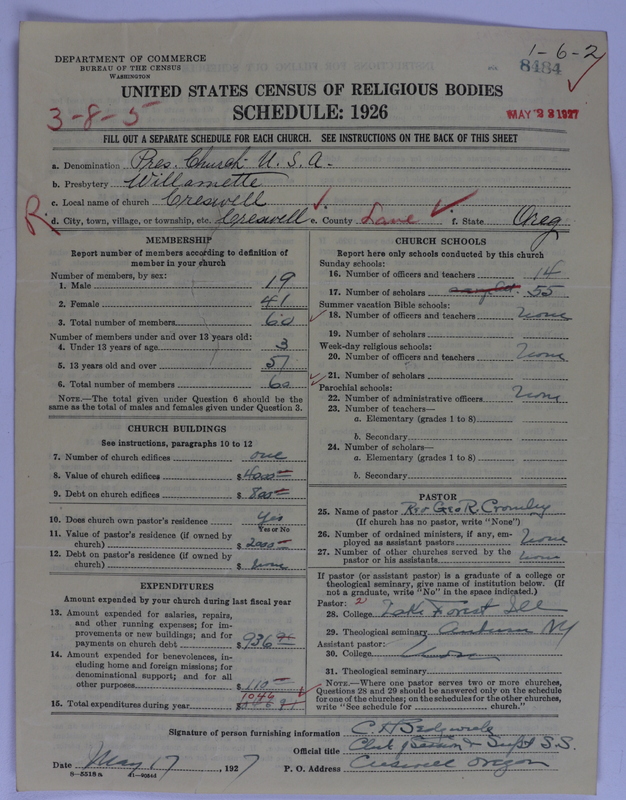 1-6-2
DEPARTMENT OF COMMERCE
BUREAU OF THE CENSUS
WASHINGTON
8484
UNITED STATES CENSUS OF RELIGIOUS BODIES
3-8-5
SCHEDULE: 1926
MAY 23 1927
FILL OUT A SEPARATE SCHEDULE FOR EACH CHURCH. SEE INSTRUCTIONS ON THE BACK OF THIS SHEET
a. Denomination Pres. Church U.S.A.
b. Presbytery Willamette
c. Local name of church Creswell
R d. City, town, village, or township, etc. Creswell e. County Lane f. State Oreg
MEMBERSHIP
Report number of members according to definition of
member in your church
Number of members, by sex:
1. Male 19
2. Female 41
3. Total number of members 60
Number of members under and over 13 years old:
4. Under 13 years of age 3
5. 13 years old and over 57
6. Total number of members 60
NOTE.—The total given under Question 6 should be
same as the total of males and females given under Question 3.
CHURCH BUILDINGS
See instructions, paragraphs 10 to 12
7. Number of church edifices one
8. Value of church edifices $4000
9. Debt on church edifices $800
10. Does church own pastor's residence Yes
Yes or No
11. Value of pastor's residence (if owned by
church) $2000
12. Debt on pastor's residence (if owned by
church) $ none
EXPENDITURES
Amount expended by your church during last fiscal year
13. Amount expended for salaries, repairs,
and other running expenses; for im-
provements or new buildings; and for
payments on church debt $936
14. Amount expended for benevolences, in-
cluding home and foreign missions; for
denominational support; and for all
other purposes $110
1046
15. Total expenditures during year $
CHURCH SCHOOLS
Report here only schools conducted by this church
Sunday schools:
16. Number of officers and teachers 14
17. Number of scholars 55
Summer vacation Bible schools:
18. Number of officers and teachers none
19. Number of scholars
Week-day religious schools:
20. Number of officers and teachers none
21. Number of scholars
Parochial schools:
22. Number of administrative officers none
23. Number of teachers—
a. Elementary (grades 1 to 8)
b. Secondary
24. Number of scholars—
a. Elementary (grades 1 to 8)
b. Secondary
PASTOR
25. Name of pastor Rev Geo R. Cromley
(If church has no pastor, write "None")
26. Number of ordained ministers, if any, em-
ployed as assistant pastors none
27. Number of other churches served by the
pastor or his assistants none
If pastor (or assistant pastor) is a graduate of a college or
theological seminary, give name of institution below. (If
not a graduate, write "No" in the space indicated.)
Pastor: 2
28. College Lake Forest Ill
29. Theological seminary Auburn NY
Assistant pastor:
30. College none
31. Theological seminary
NOTE.—Where one pastor serves two or more churches,
Questions 28 and 29 should be answered only on the schedule
for one of the churches; on the schedules for the other churches,
write "See schedule for church."
Signature of person furnishing information C. H. Sedgwick
Official title Clerk of Session & Supt S.S.
Date May 17, 1927 P. O. Address Creswell Oregon
8—5518 a